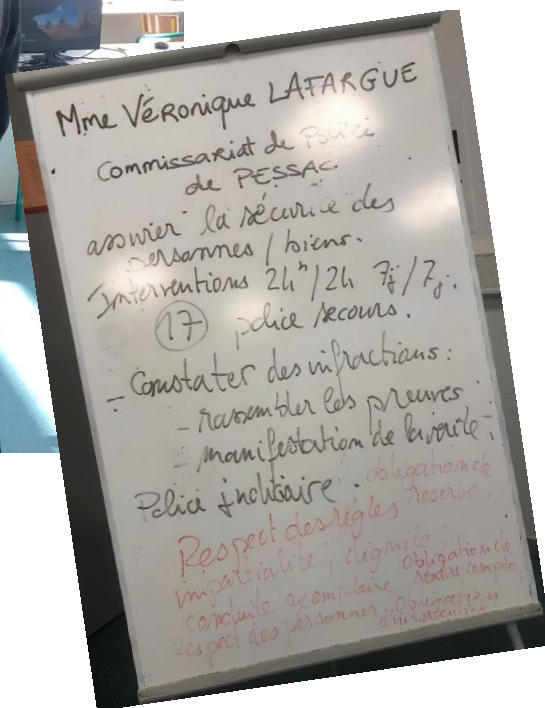 Mme VéRonique LAFARGUE
Commissariat de Police
de PESSAC
assurer la sécurité des
personnes / biens.
Interventions 24h/24 7j/7j.
17 police secours.
- Constater des infractions :
- rassembler les preuves
- manifestation de la vérité.
Police judiciaire.
Respect des règles obligation de réserve.
impartialité, dignité
conduite exemplaire obligation de rendre compte
respect des personnes. Obligation